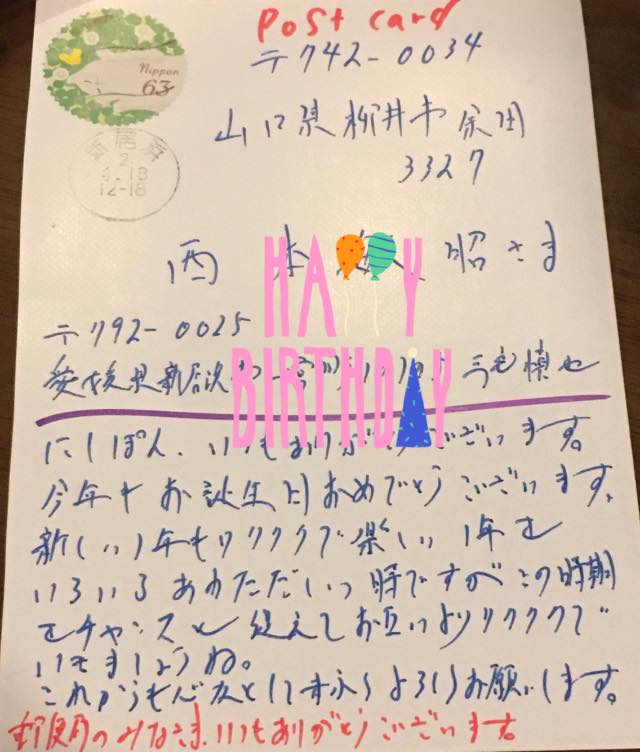 Post card
Nippon
63
新居浜
2
4.13
12-18
〒742-0034
山口県柳井市余田
3327
西 本 昭さま
HAPPY
BIRTHDAY
〒792-0025
愛媛県新居浜市一宮町 三宅慎也
にしぽん、いつもありがとうございます。
今年もお誕生日おめでとうございます。
新しい1年もワクワクで楽しい1年を
いろいろあわただしい時ですがこの時期
をチャンスと捉えてお互いよりワクワクで
いきましょうね。
これからも心友として末永くよろしくお願いします。
郵便局のみなさま、いつもありがとうございます。